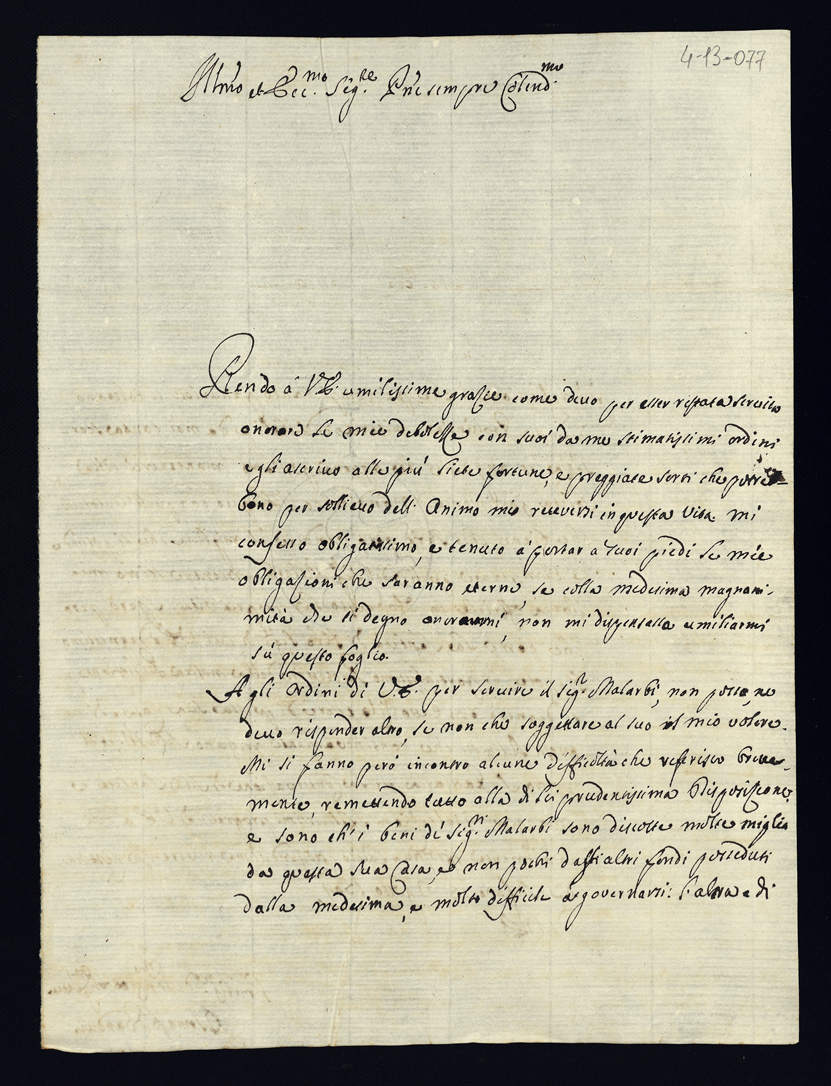 4-13-077
Ill.mo et Ecc.mo Sig.re P.ne sempre Colend.mo
Rendo á V.E. umilissime grazie come devo per esser restata servita
onorare le mie debolezze con suoi da me stimatissimi ordini
e gli ascrivo alle piú liete fortune, e preggiate sorti che potre-
bono per sollievo dell' Animo mio riceversi in questa vita. mi
confesso obligatissimo, e tenuto á portar a suoi piedi le mie
obligazioni che saranno eterne, se colla medesima magnani-
mitá che si degnò onorarmi, non mi dispensasse umiliarmi
sú questo foglio.
Agli ordini di V.E. per servire il Sig.r Malarbi, non posso, ne
devo risponder altro, se non che soggettare al suo il mio volere.
Mi si fanno peró incontro alcune difficoltá che riferisco breve-
mente, remettendo tutto alla di lei prudentissima disposizione,
e sono ch' i beni de' Sig.ri Malarbi sono discoste molte miglia
da questa sua Casa, e non pochi dassi altri fondi posseduti
dalla medesima, e molto difficile a governarsi: l' altra e di